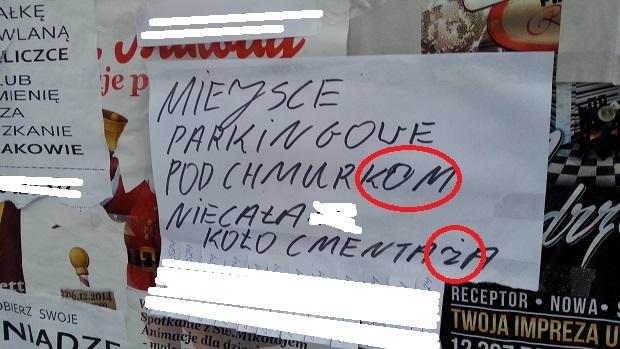 AŁKĘ
WLANĄ
LICZCE
LUB
MIENIĘ
ZA
SZKANIE
AKOWIE
je p
MIEJSCE
PARKINGOWE
POD CHMURKOM
NIECAŁA
KOŁO CMENTAŻA
06.12.2014
OBIERZ SWOJE
NIĄDZE
Spotkanie z Św. Mikołajem
Animacje dla dzieci
RECEPTOR • NOWA • S
TWOJA IMPREZA U